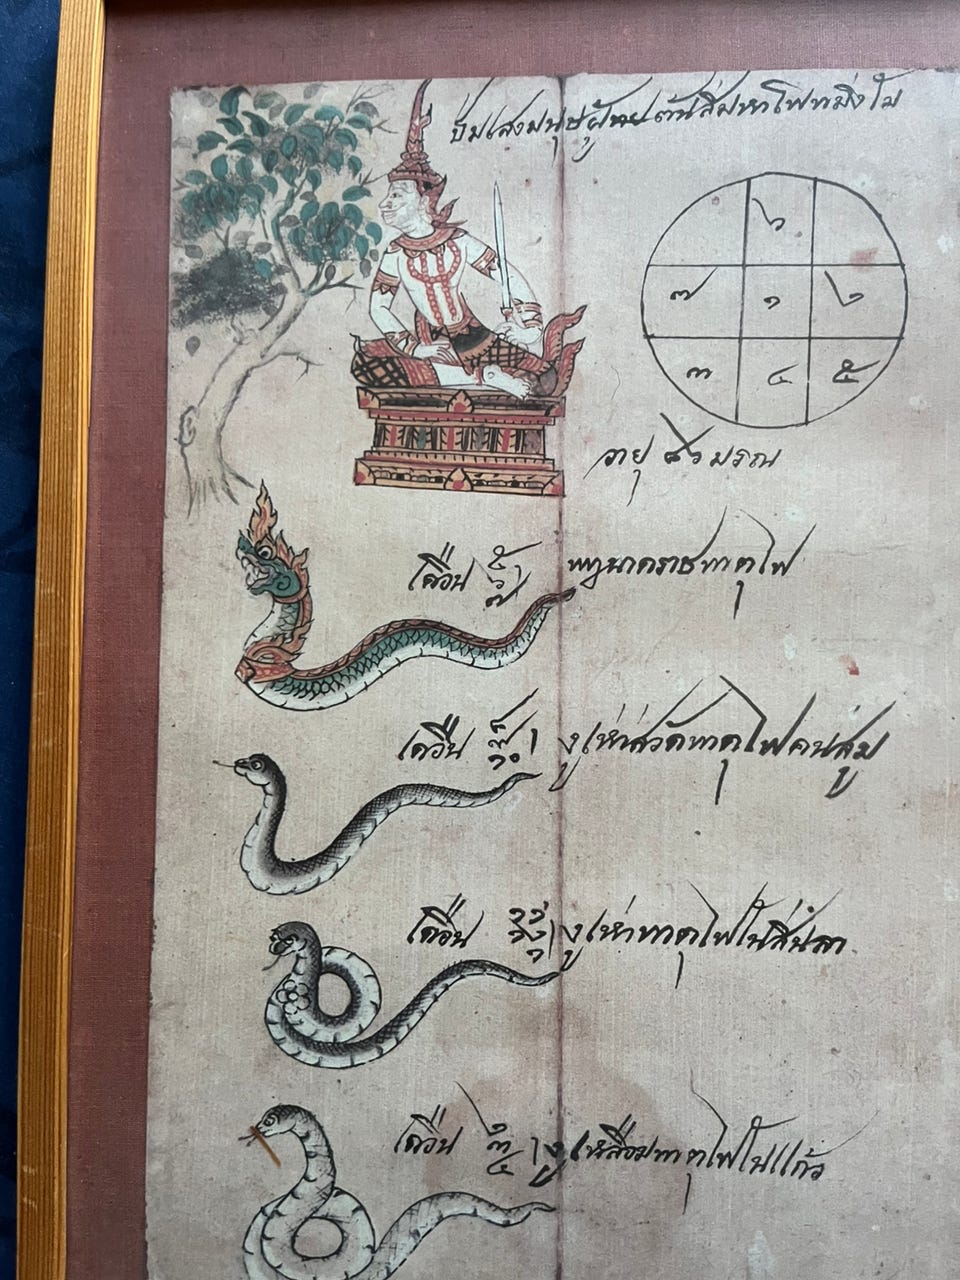 ปีมเสงมนุษผู้ชาย ต้นสิ่มหาโพ
๖
๗ ๑ ๒
๓ ๔ ๕
อายุ มรณ
เดือน ๕ ๖ ๗ พญานาคราชทาตุไฟ
เดือน ๘ ๙ ๑๐ งูเห่า ทาตุไฟ
เดือน ๑๑ ๑๒ ๑ งูเห่าทาตุไฟ
เดือน ๒ ๓ ๔ งูเหลือมทาตุไฟ แก้ว